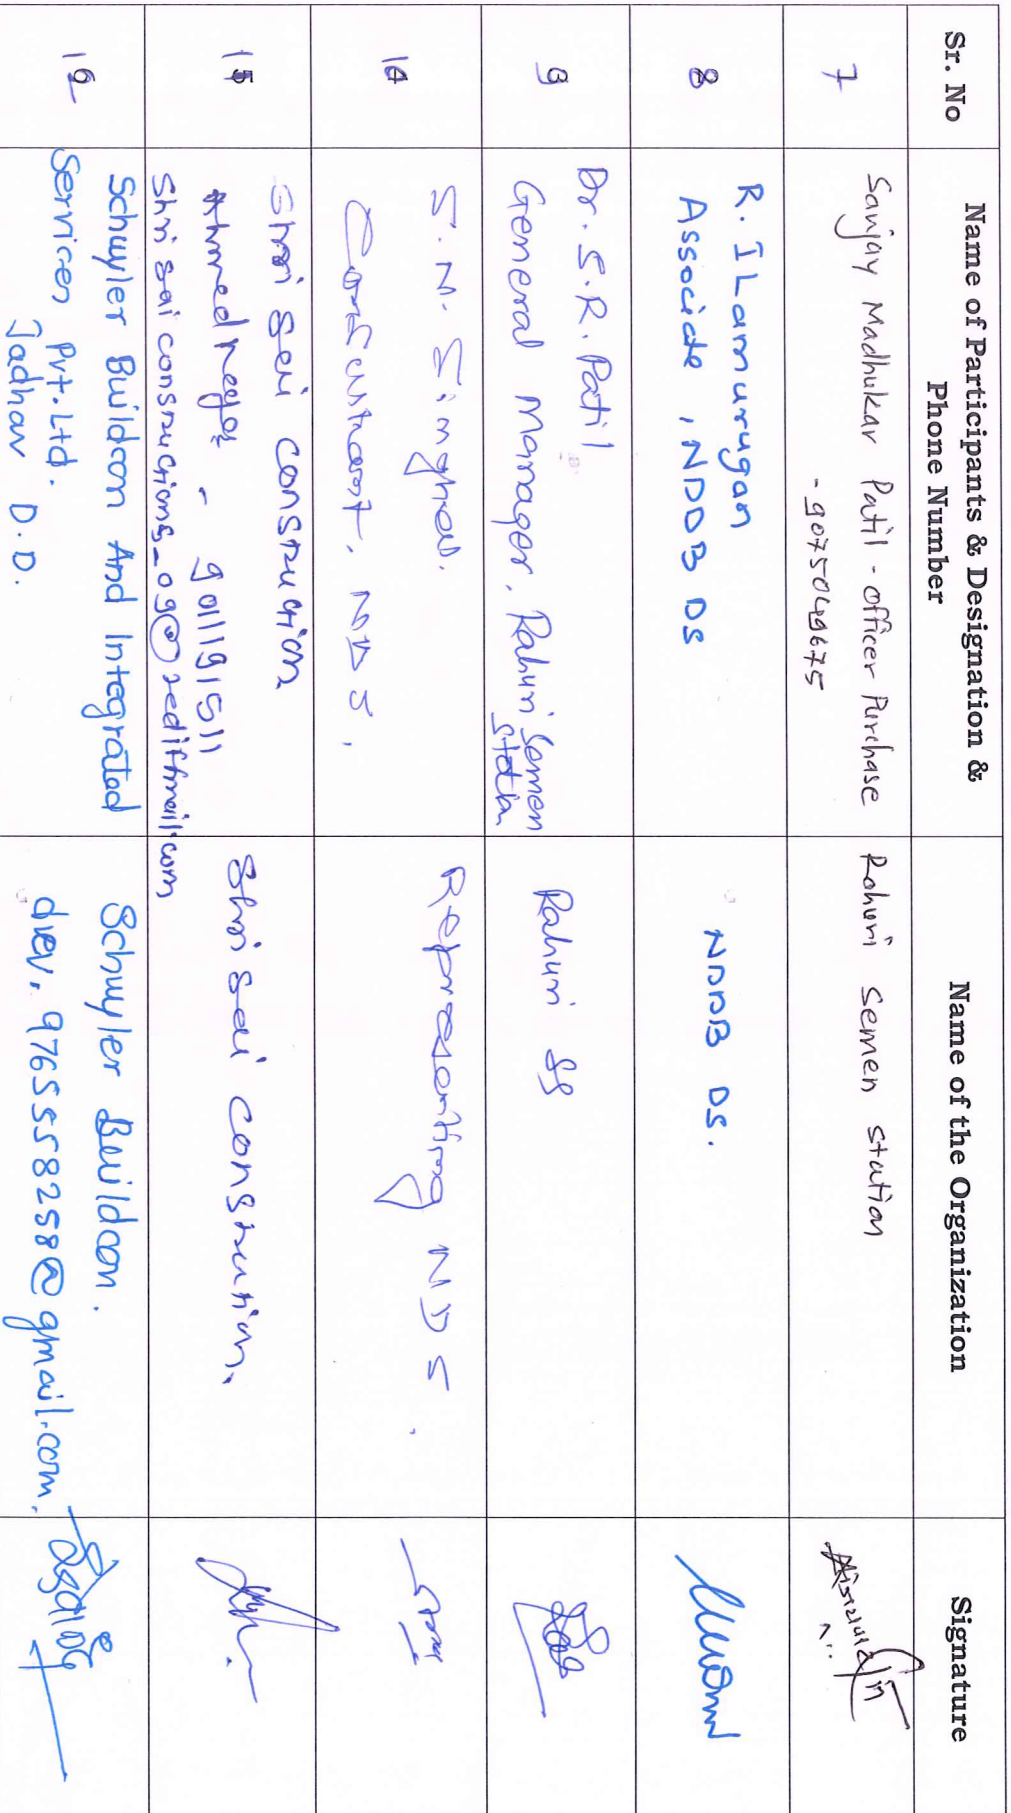 Sr. No
Name of Participants & Designation &
Phone Number
Name of the Organization
Signature
7
Sanjay Madhukar Patil - officer Purchase
- 9075049675
Rahuri Semen Station
8
R. ILamurugan
Associate, NDDB DS
NDDB DS.
9
Dr. S.R. Patil
General Manager, Rahuri Semen
Station
Rahuri SS
10
S. M. Singhal.
Consultant, NDS,
Representing NDS.
11
Shri Sai construction
Ahmednagar - 9011191511
Shri sai constructions_09@rediffmail.com
Shri Sai construction.
12
Schuyler Buildcon And Integrated
Services Pvt. Ltd.
Jadhav D.D.
Schuyler Buildcon.
dev. 9765558258@gmail.com.